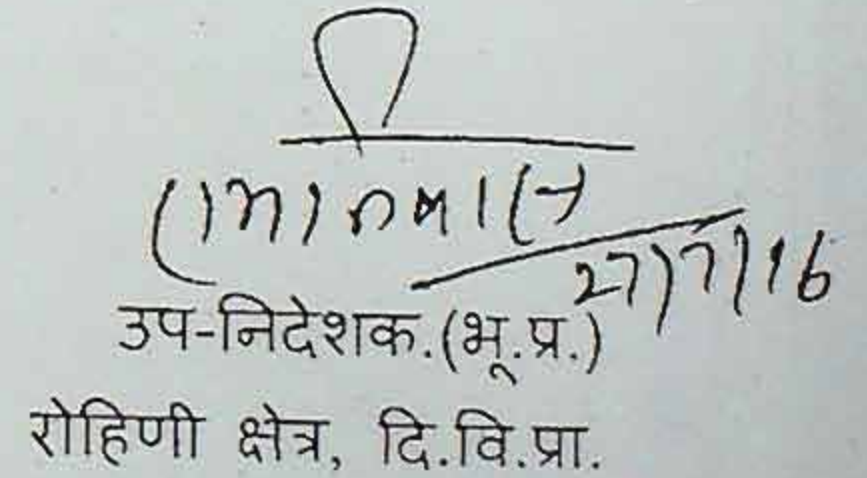 27/7/16
उप-निदेशक.(भू.प्र.)
रोहिणी क्षेत्र, दि.वि.प्रा.